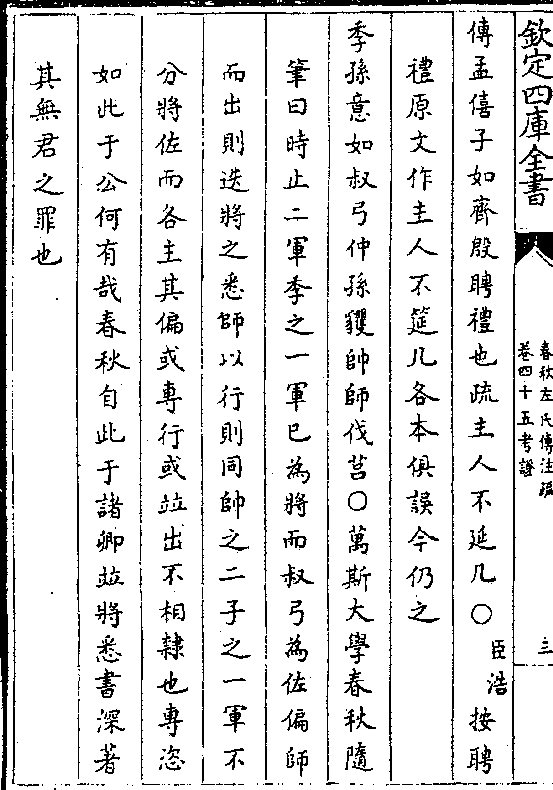 欽定四庫全書
春秋左氏傳注疏
卷四十五考證
三
傳孟僖子如齊殷聘禮也疏主人不延几○臣浩按聘
禮原文作主人不筵几各本俱誤今仍之
季孫意如叔弓仲孫貜帥師伐莒○萬斯大學春秋隨
筆曰時止二軍季之一軍已為將而叔弓為佐偏師
而出則迭將之悉師以行則同帥之二子之一軍不
分將佐而各主其偏或専行或竝出不相隸也専恣
如此于公何有哉春秋自此于諸卿竝將悉書深著
其無君之罪也